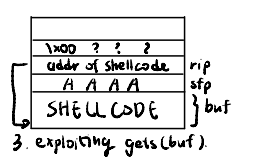 \x00 ? ? ?
addr of shellcode rip
A A A A sfp
SHELLCODE } buf
3. exploiting gets(buf).